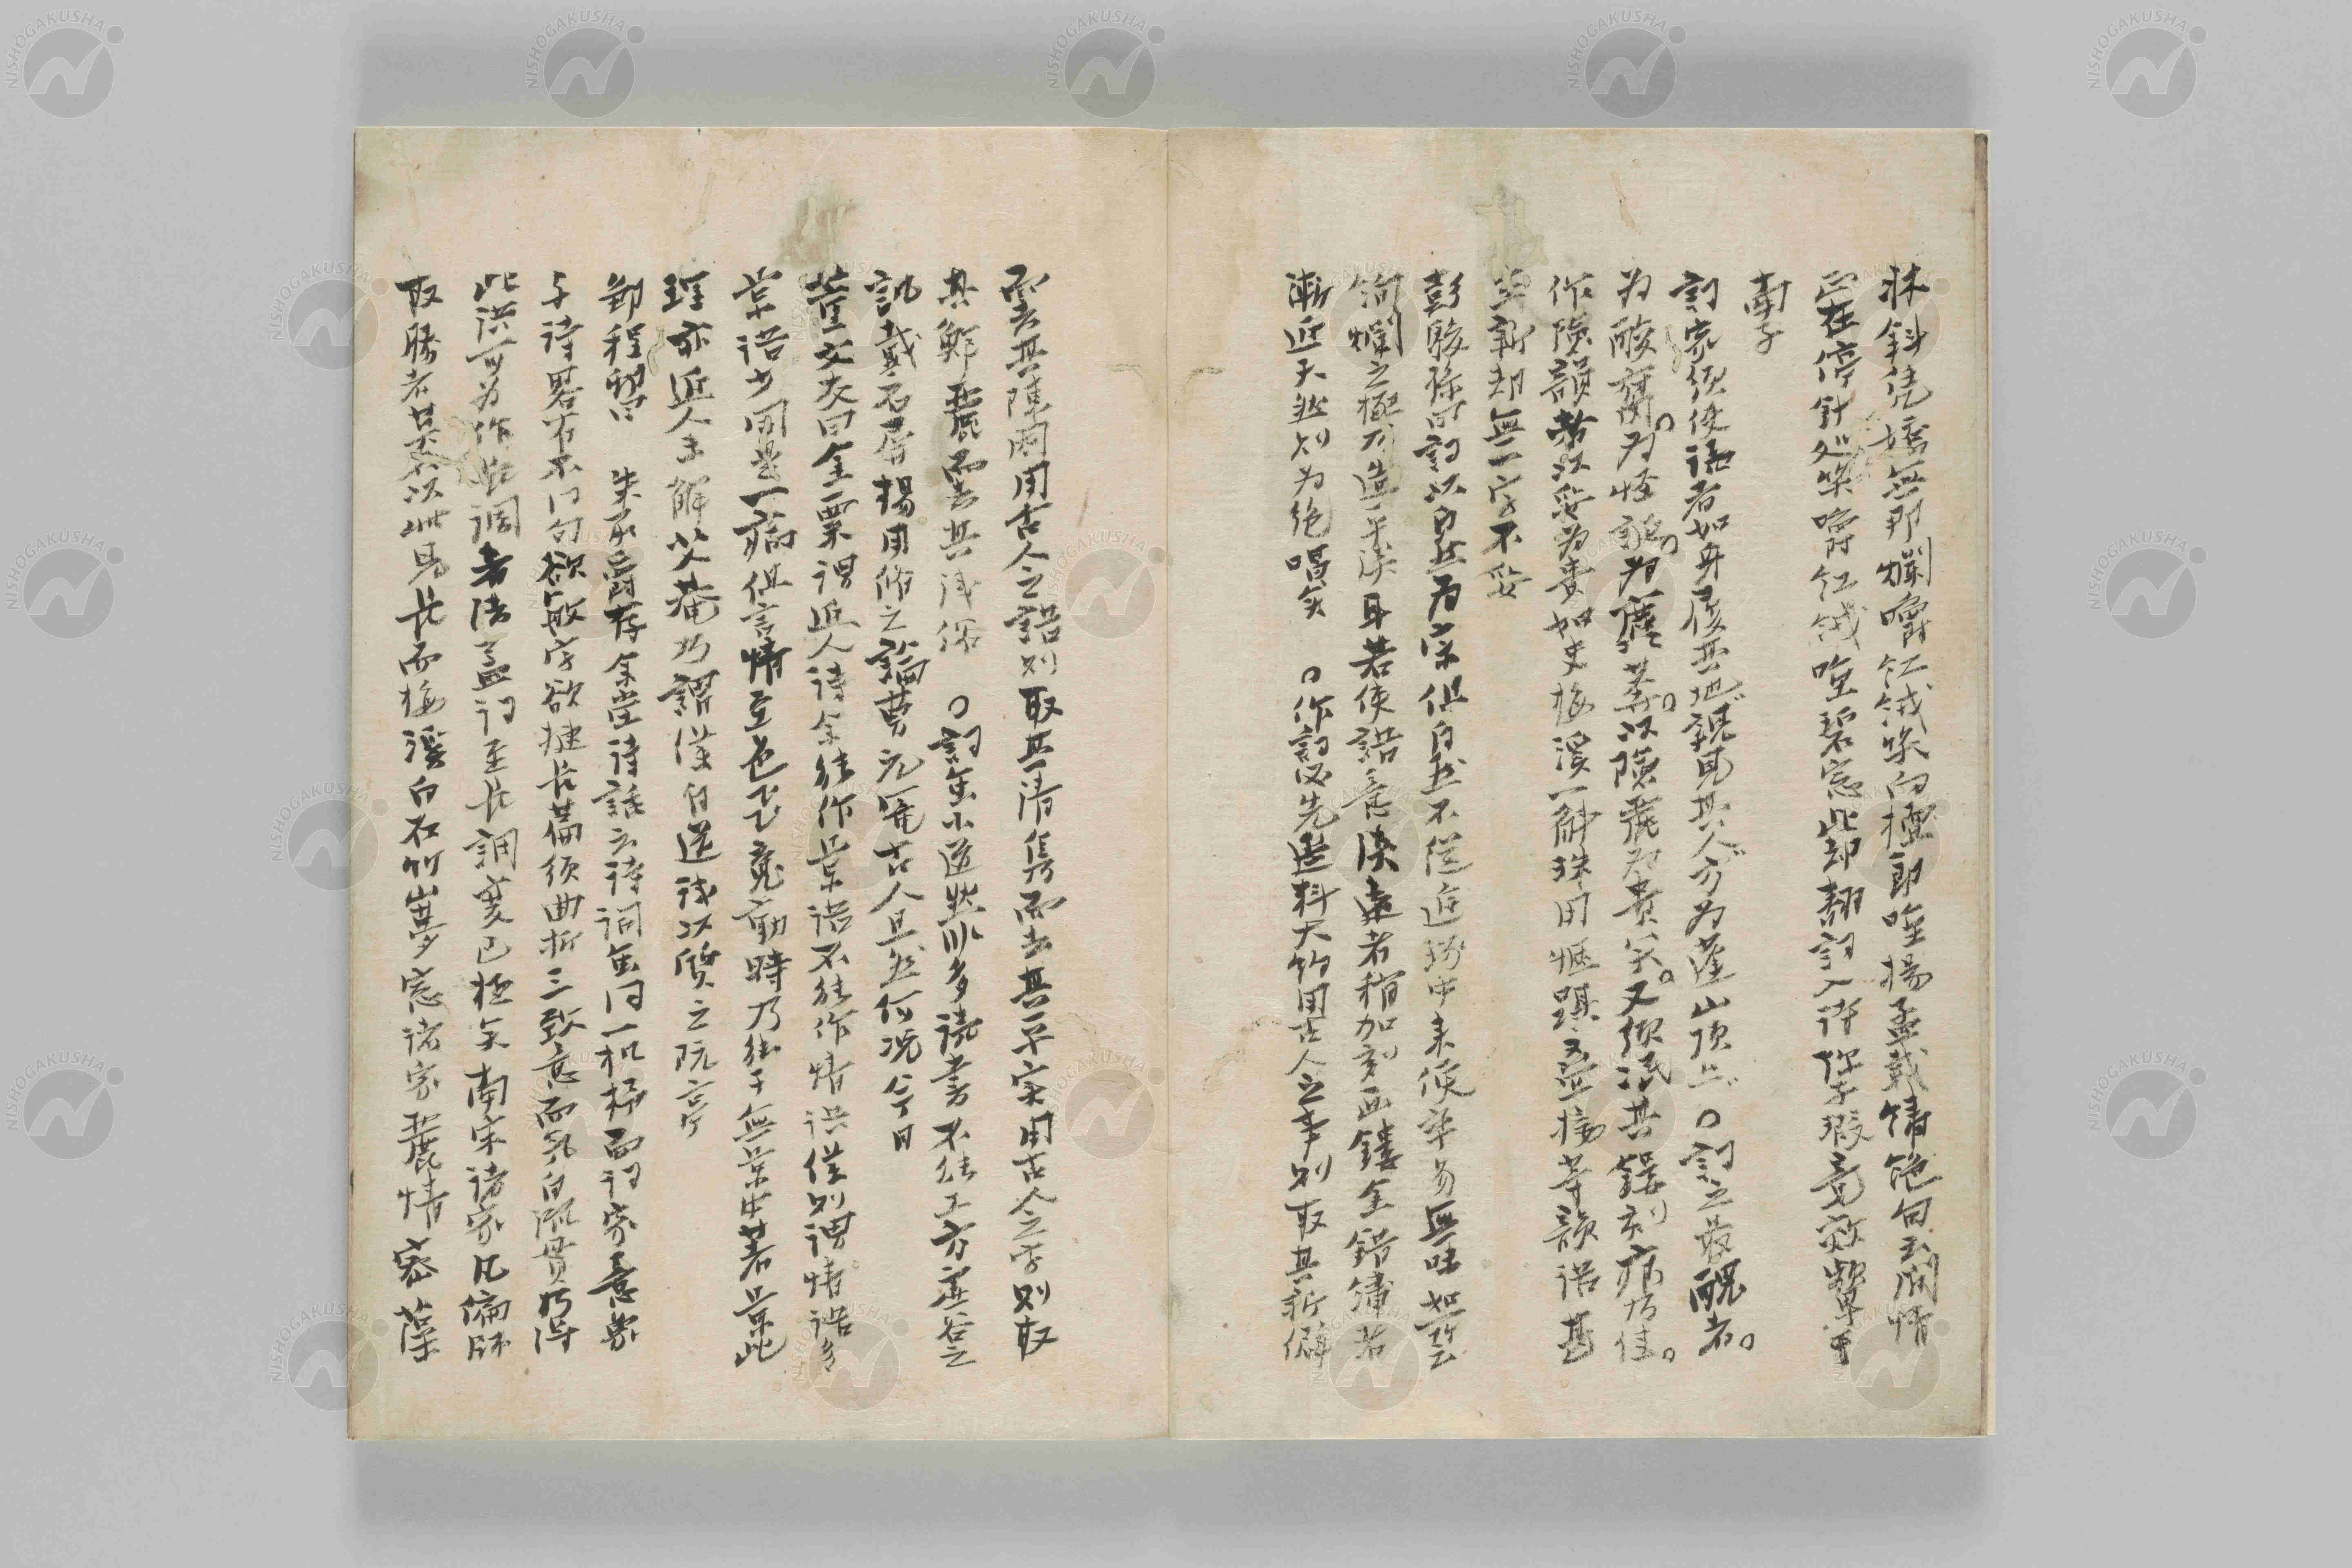 牀斜凭嬌無那爛嚼紅絨笑向檀郎唾楊孟載繡絶句云閑情
正在停針処笑嚼紅絨唾碧窓此却翻詞入詩弥子瑕竟效顰于
南子
詞家須使讀者如身履其地親見其人方為蓬山頂上○詞之最醜者
為酸腐為怪誕為麄莽以險麗為貴矣又須泯其鏤刻痕乃佳
作險韻者以妥為貴如史梅溪一斛珠用愜蹀疊接等韻語甚
生新却無一字不妥
彭駿孫曰詞以自然為宗但自然不從追琢中来便率易無味如所云
絢爛之極乃造平淡耳若使語意淡遠者稍加刻画鏤金錯繡者
漸近天然則为絶唱矣　○作詞必先選料大約用古人之事則取其新僻
而去其陳因用古人之語則取其清隽而去其平実用古人之字則取
其鮮麗而去其浅俗　○詞虽小道然非多讀書不能工方虚谷之
訊戴石屏楊用修之論曹元寵古人且然何况今日
董文友曰金粟謂近人詩余能作景語不能作情語僕則謂情語多
景語少同是一病但言情至色飞魂動時乃能于無景中著景此
理亦近人未解父菴乃謂僕自道試以質之阮亭
鄒程邨曰　朱承爵存余堂詩話云詩詞虽同一机杼而詞家意象
与詩畧有不同句欲敏字欲捷長篇須曲折三致意而気自流貫乃得
此語可为作長調者法盖詞至長調変已極矣南宋諸家凡偏師
取勝者莫不以此見長而梅溪白石竹山夢窓諸家麗情密藻